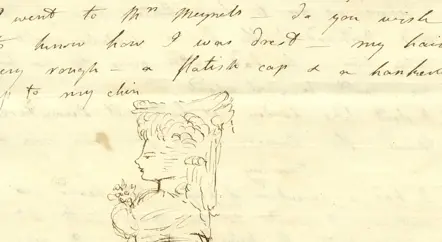 I went to Mrs Meynels – do you wish
to know how I was drest – my hair
very rough – a flatish cap & a hankerc
up to my chin